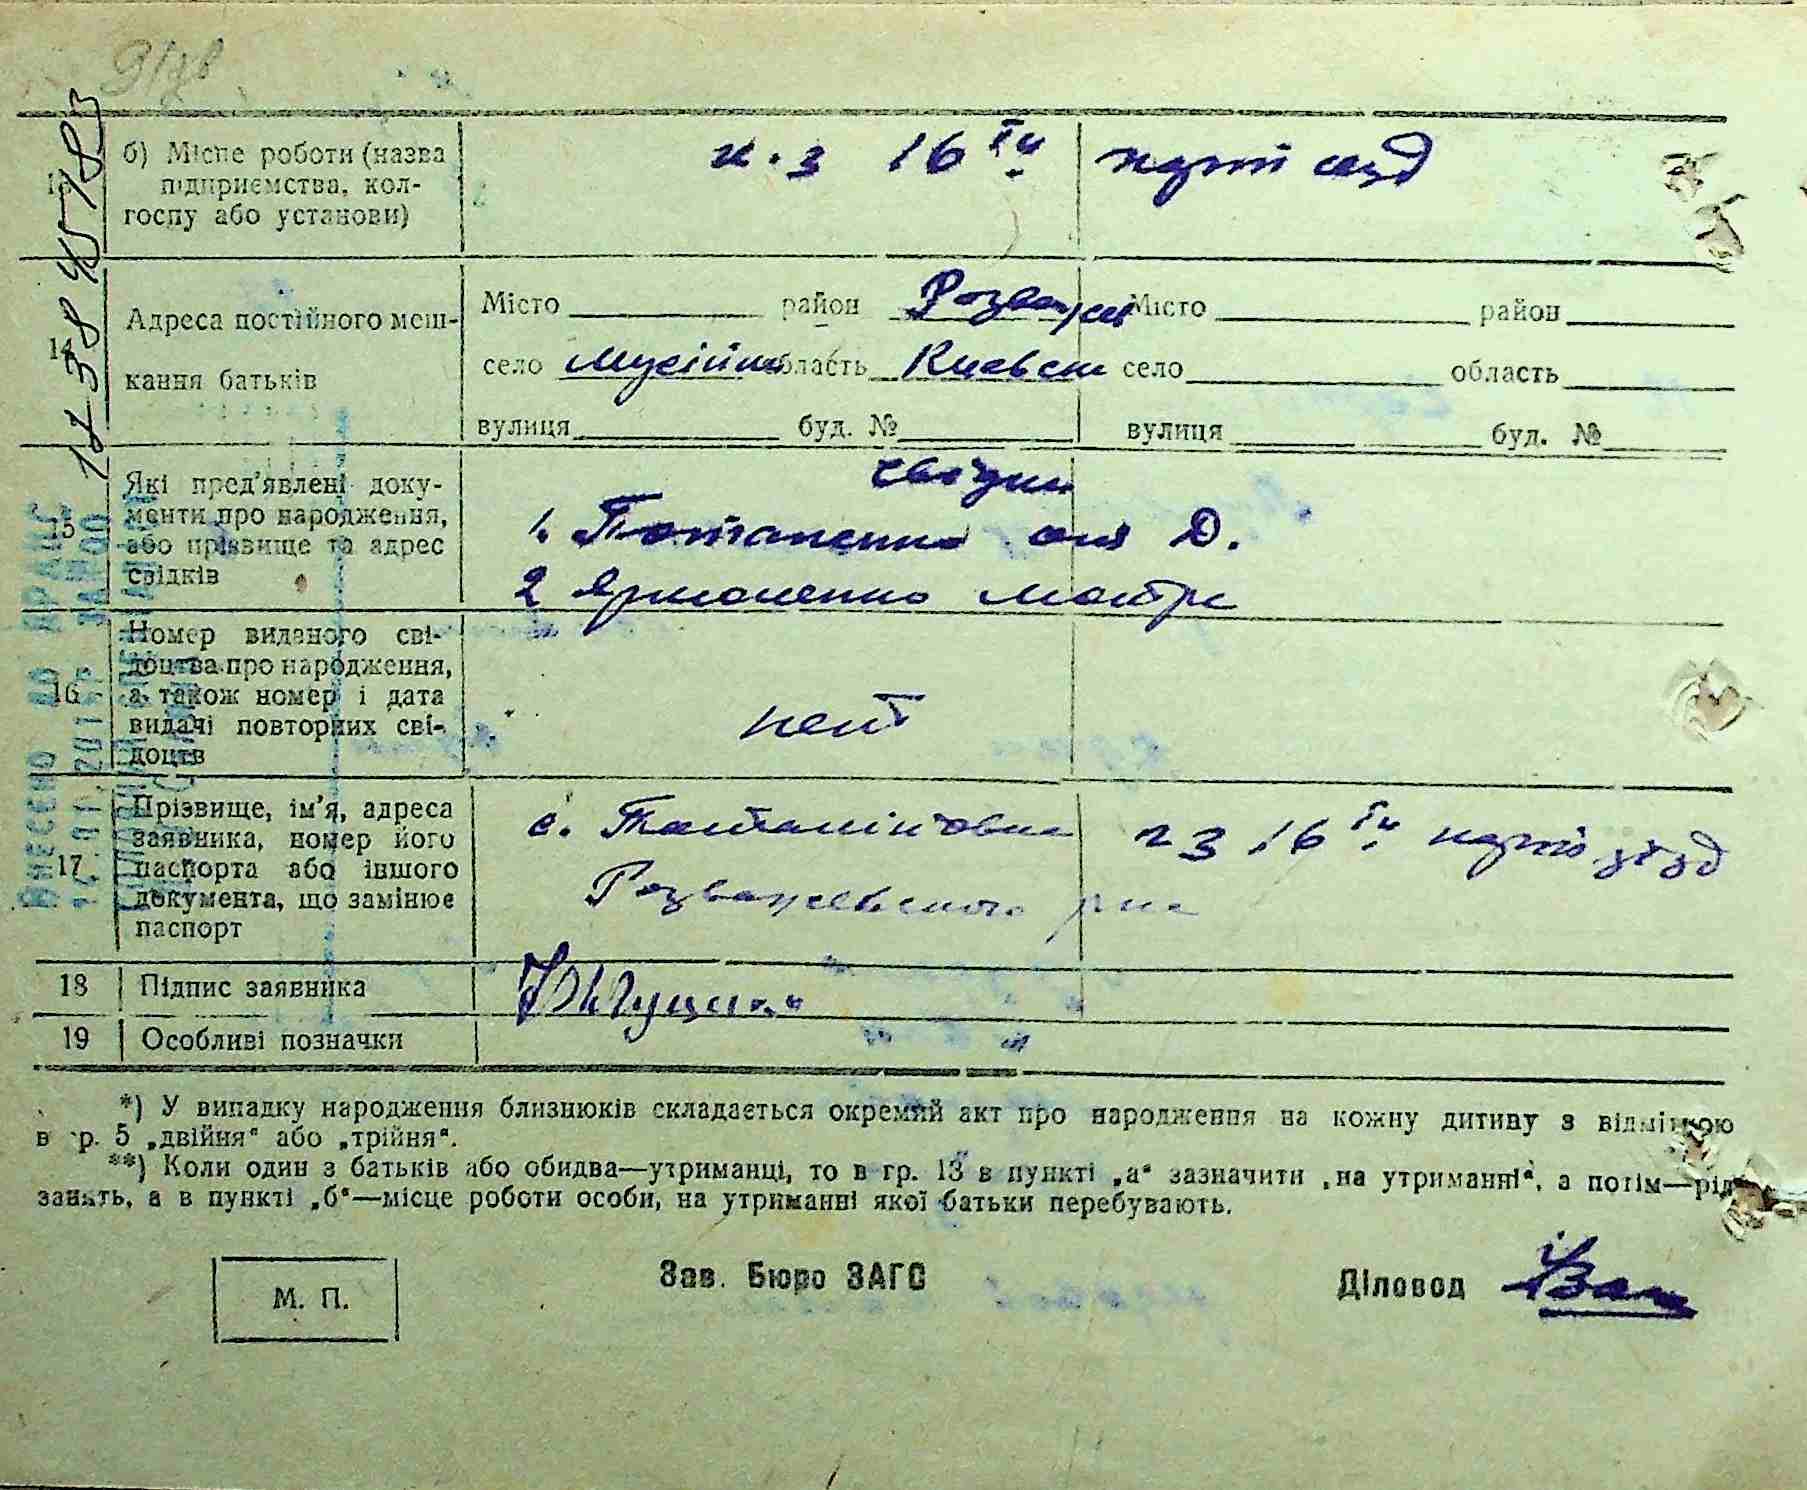 б) Місце роботи (назва
підприємства, кол-
госпу або установи)
к.з 16 ти парт
14
Адреса постійного меш-
кання батьків
Місто район Розваж
село область Києвськ
вулиця буд. №
Місто район
село область
вулиця буд. №
15
Які пред'явлені доку-
менти про народження,
або прізвище та адрес
свідків
свідки
1. Потапенко Оля Д.
2 Ярмоленко Мотря
16
Номер виданого сві-
доцтва про народження,
а також номер і дата
видачі повторних сві-
доцтв
нет
17
Прізвище, ім'я, адреса
заявника, номер його
паспорта або іншого
документа, що замінює
паспорт
с. 16 ти парт зїзд
Розважевського р-на
18 Підпис заявника
19 Особливі позначки
*) У випадку народження близнюків складається окремий акт про народження на кожну дитину з відміткою
в гр. 5 „двійня“ або „трійня“.
**) Коли один з батьків або обидва—утриманці, то в гр. 13 в пункті „а“ зазначити „на утриманні“, а потім—рід
занять, а в пункті „б“—місце роботи особи, на утриманні якої батьки перебувають.
М. П.
Зав. Бюро ЗАГС
Діловод